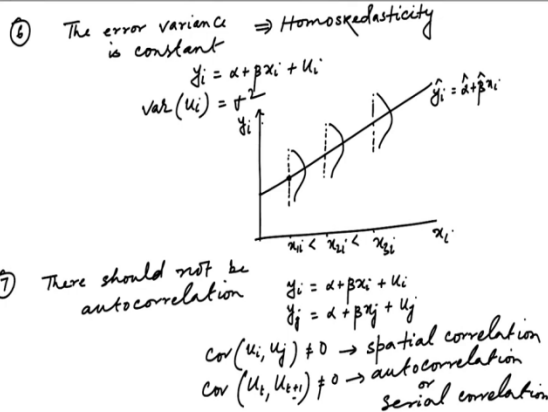 ⑥ The error variance ⇒ Homoskedasticity
is constant
yi = α + βxi + ui
var (ui) = σ²
yi
ŷi = α̂ + β̂xi
x1i < x2i < x3i xi
⑦ There should not be
autocorrelation
yi = α + βxi + ui
yj = α + βxj + uj
cov (ui, uj) ≠ 0 → spatial correlation
cov (ut, ut+1) ≠ 0 → autocorrelation
or
serial correlation